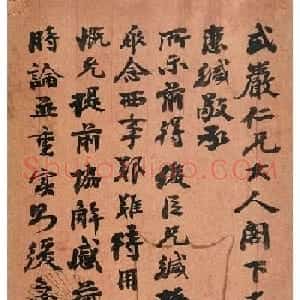 武嚴仁兄大人閣下
惠緘敬承
所示前得 復臣兄緘
眾念西事艱難待用
慨允提前協解感荷
時論並重實為